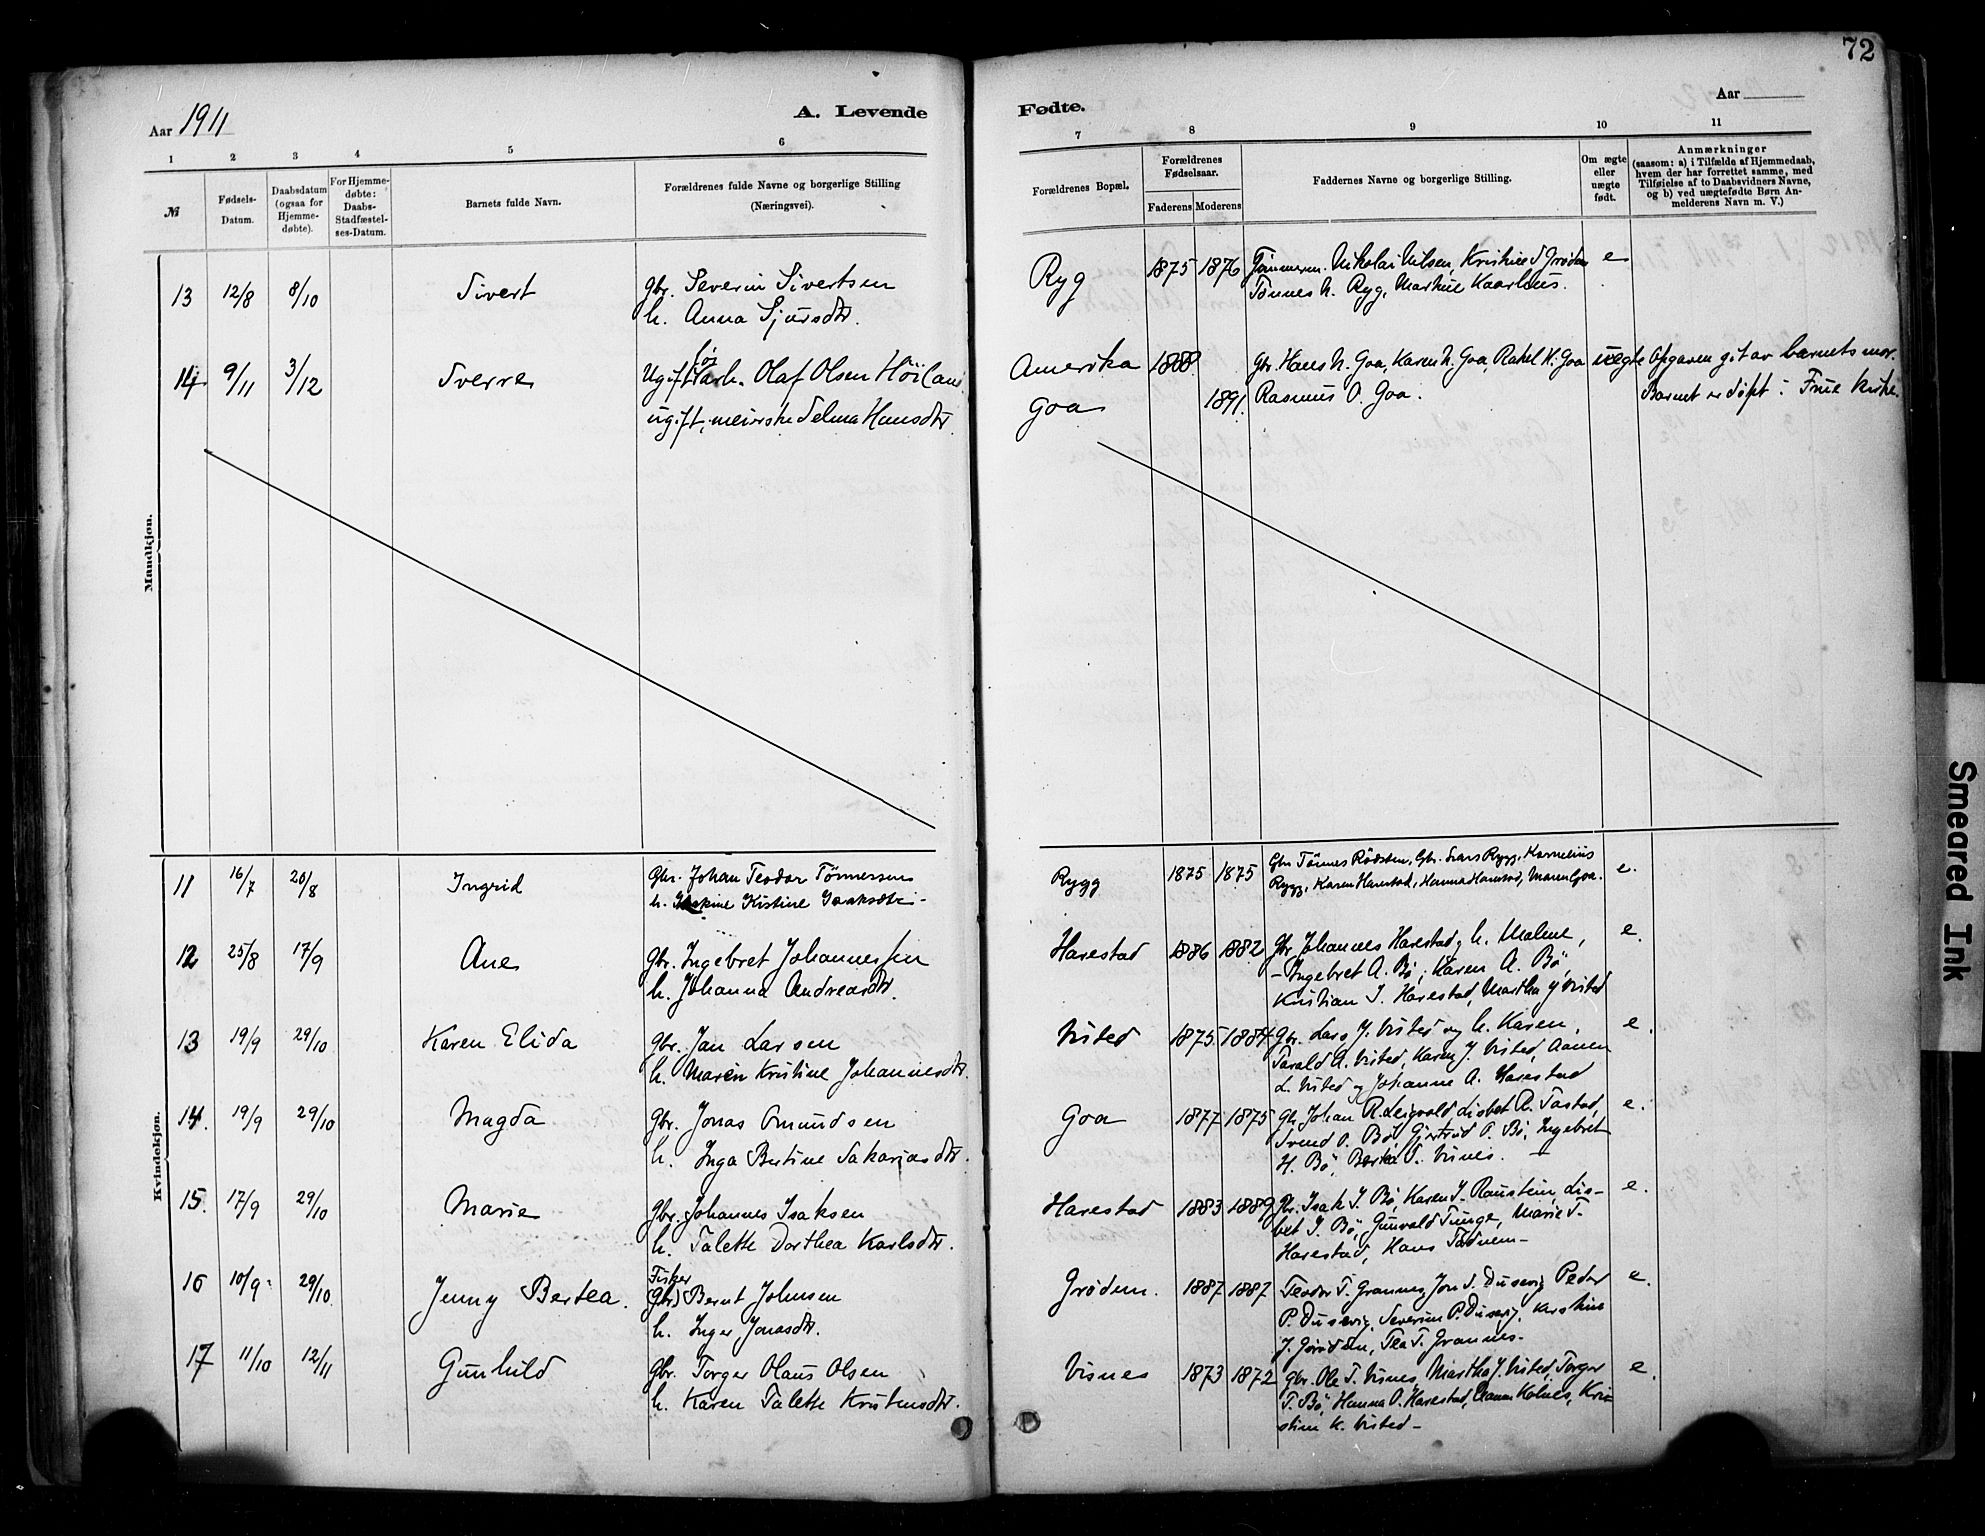 72
Aar 1911
A. Levende
Fødte.
Aar
1 2 3 4 5 6 7 8 9 10 11
№
Fødsels-
Datum.
Daabsdatum
(ogsaa for
Hjemme-
døbte).
For Hjemme-
døbte:
Daabs-
Stadfæstel-
ses-Datum.
Barnets fulde Navn.
Forældrenes fulde Navne og borgerlige Stilling
(Næringsvei).
Forældrenes Bopæl.
Forældrenes
Fødselsaar.
Faderens Moderens
Faddernes Navne og borgerlige Stilling.
Om ægte
eller
uægte
født.
Anmærkninger
(saasom: a) i Tilfælde af Hjemmedaab,
hvem der har forrettet samme, med
Tilføielse af to Daabsvidners Navne,
og b) ved uægtefødte Børn An-
melderens Navn m. V.)
Mandkjøn.
13 12/8 8/10 Sivert gbr. Severin Sivertsen Ryg 1875 1876 Nikolai Nilsen, Kristine Grødem e
h. Anna Sjursdtr. Tønnes N. Ryg, Martine Kaarhus.
14 9/11 3/12 Sverre Ugift løsarb. Olaf Olsen Höiland Amerika 1888. Gbr. Hans N. Goa, Karen N. Goa, Rakel H. Goa uægte Opgaven git av barnets mor.
ugift, meierske Selma Hansdtr Goa 1891. Rasmus O. Goa. Barnet er døpt i Frue kirke.
Kvindekjøn.
11 16/7 20/8 Ingrid Gbr. Johan Teodor Tönnessen Rygg 1875 1875 Gbr Tönnes Rödsten, Gbr. Lars Rygg, Kornelius e.
h. Kistine Isaksdtr. Rygg, Karen Harestad, Hanna Harestad, Maren Goa.
12 25/8 17/9 Ane Gbr. Ingebret Johannessen Harestad 1886 1882 Gbr. Johannes Harestad og h. Malene, e.
h. Johanna Andreasdtr. - Ingebret A. Bö, Karen A. Bö,
Kristian I. Harestad, Martha J Visted
13 19/9 29/10 Karen Elida gbr. Jan Larsen Visted 1875 1884 Gbr. Lars J. Visted og h. Karen, e.
h. Maren Kristine Johannesdtr. Tarald A. Visted, Karen J. Visted, Aanen
L. Visted og Johanne A. Harestad
14. 19/9 29/10 Magda Gbr. Jonas Omundsen Goa 1877 1875 Gbr Johan R. Leigvold, Lisbet R. Tastad, e.
h. Inga Bertine Sakariasdtr. Svend O. Bö, Gjertrud O. Bö, Ingebret
H. Bö, Berta S. Visnes.
15. 17/9 29/10 Marie Gbr. Johannes Isaksen Harestad 1883 1889 Gbr. Isak I. Bö, Karen I. Raustein, Lis- e.
h. Talette Dorthea Karlsdtr. bet I. Bö, Gunvald Tunge, Marie T.
Harestad, Hans Tadnem-
16 10/9 29/10 Jenny Bertea. Fisker (Gbr) Bernt Johnsen Grødem. 1887 1887 Teodor T. Grannes, Jon S. Dusevig, Peder e.
h. Inger Jonasdtr. P. Dusevig, Severine P. Dusevig, Kristine
J. Grødem, Tea T. Grannes-
17 11/10 12/11 Gunhild gbr. Torger Olaus Olsen Visnes 1873 1872 gbr. Ole T. Visnes, Martha J. Visted, Torger e.
h. Karen Talette Kristensdtr. T. Bö, Hanna O. Harestad, Kolnes, Kri-
stine K. Visted-
Smeared Ink